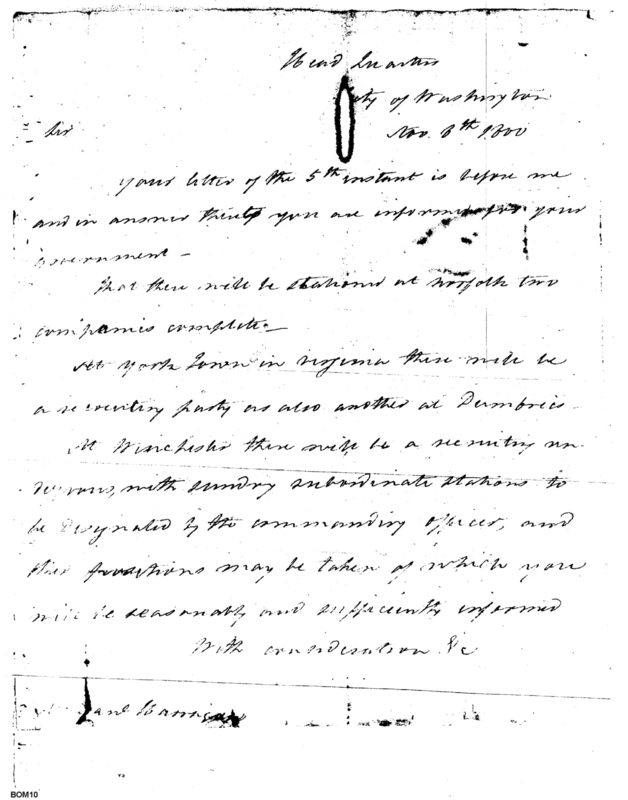 Head Quarters
City of Washington
Sir Nov. 8th 1800
your letter of the 5th instant is before me
and in answer thereto you are informed for your
government -
that there will be stationed at norfolk two
companies complete -
At york Town in virginia there will be
a recruiting party as also another at Dumfries
At Winchester there will be a recruiting ren
dezvous, with sundry subordinate stations to
be designated by the commanding officer, and
other positions may be taken of which you
will be seasonably and sufficiently informed
With consideration &c
BOM10